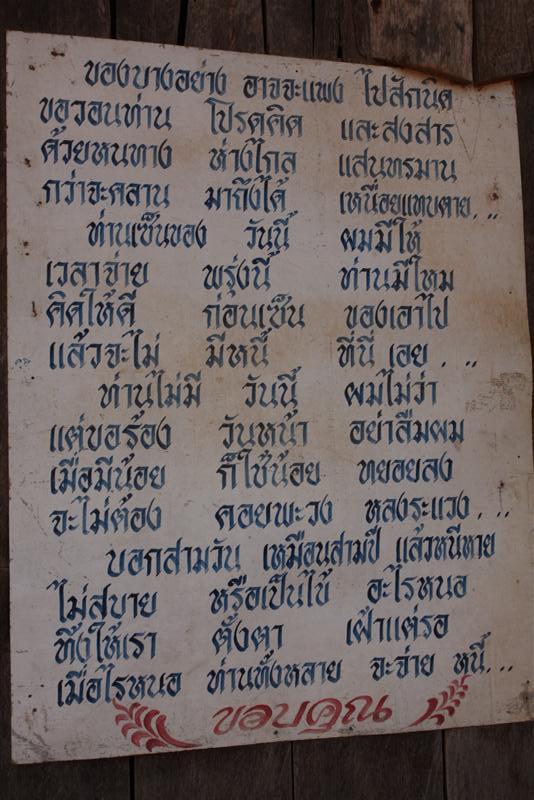 ของบางอย่าง อาจจะแพง ไปสักนิด
ขอวอนท่าน โปรดคิด และสงสาร
ด้วยหนทาง ห่างไกล แสนทรมาน
กว่าจะคลาน มาถึงได้ เหนื่อยแทบตาย...
ท่านเซ็นของ วันนี้ ผมมีให้
เวลาจ่าย พรุ่งนี้ ท่านมีไหม
คิดให้ดี ก่อนเซ็น ของเอาไป
แล้วจะไม่ มีหนี้ ที่นี่ เอย...
ท่านไม่มี วันนี้ ผมไม่ว่า
แต่ขอร้อง วันหน้า อย่าลืมผม
เมื่อมีน้อย ก็ใช้น้อย ทยอยลง
จะไม่ต้อง คอยพะวง หลงระแวง...
บอกสามวัน เหมือนสามปี แล้วหนีหาย
ไม่สบาย หรือเป็นไข้ อะไรหนอ
ทิ้งให้เรา ตั้งตา เฝ้าแต่รอ
เมื่อไรหนอ ท่านทั้งหลาย จะจ่าย หนี้...
ขอบคุณ